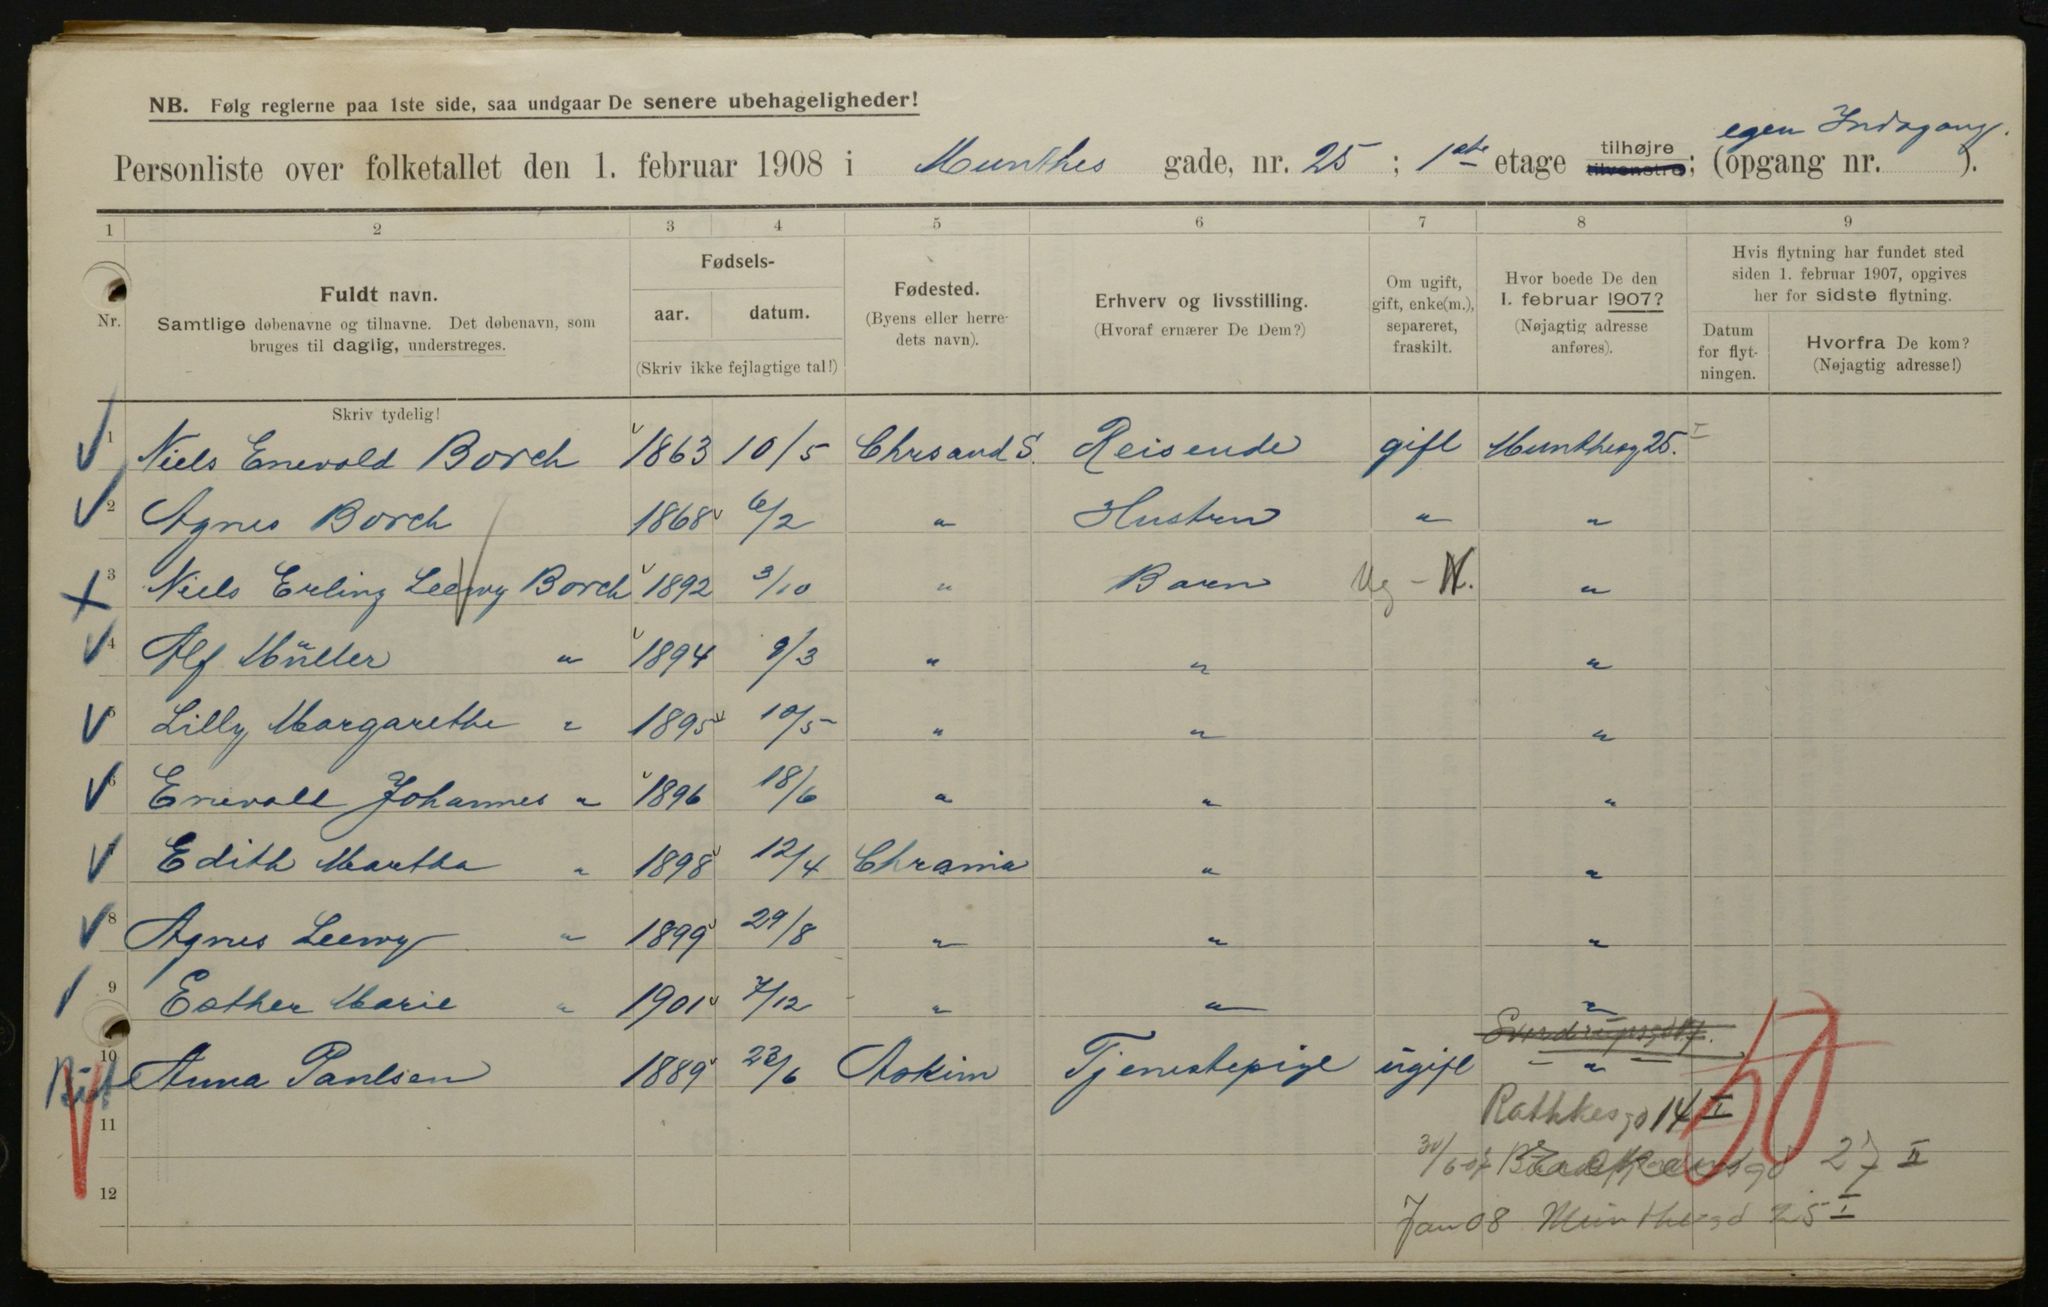 NB. Følg reglerne paa 1ste side, saa undgaar De senere ubehageligheder!
egen Indgang.
Personliste over folketallet den 1. februar 1908 i Munthes gade, nr. 25; 1ste etage tilhøjre tilvenstre; (opgang nr. ).
1 2 3 4 5 6 7 8 9
Nr.
Fuldt navn.
Samtlige døbenavne og tilnavne. Det døbenavn, som
bruges til daglig, understreges.
Fødsels-
aar. datum.
(Skriv ikke fejlagtige tal!)
Fødested.
(Byens eller herre-
dets navn).
Erhverv og livsstilling.
(Hvoraf ernærer De Dem?)
Om ugift,
gift, enke(m.),
separeret,
fraskilt.
Hvor boede De den
1. februar 1907?
(Nøjagtig adresse
anføres).
Hvis flytning har fundet sted
siden 1. februar 1907, opgives
her for sidste flytning.
Datum
for flyt-
ningen.
Hvorfra De kom?
(Nøjagtig adresse!)
Skriv tydelig!
1 Niels Enevold Borch 1863 10/5 Chrsand S. Reisende gift Munthesg 25. I
2 Agnes Borch 1868 6/2 " Hustru " "
3 Niels Erling Leewy Borch 1892 3/10 " Barn Ug - "
4 Alf Müller " 1894 9/3 " " "
5 Lilly Margarethe " 1895 10/5 " " "
6 Enevald Johannes " 1896 18/6 " " "
7 Edith Martha " 1898 12/4 Chrania " "
8 Agnes Leewy " 1899 29/8 " " "
9 Esther Marie " 1901 7/12 " " "
10 Anna Paulsen 1889 23/6 Askim Tjenestepige ugift "
50
11 Rathkesgd 14 I
27 II
12 Jan 08 Munthesgd 25 I